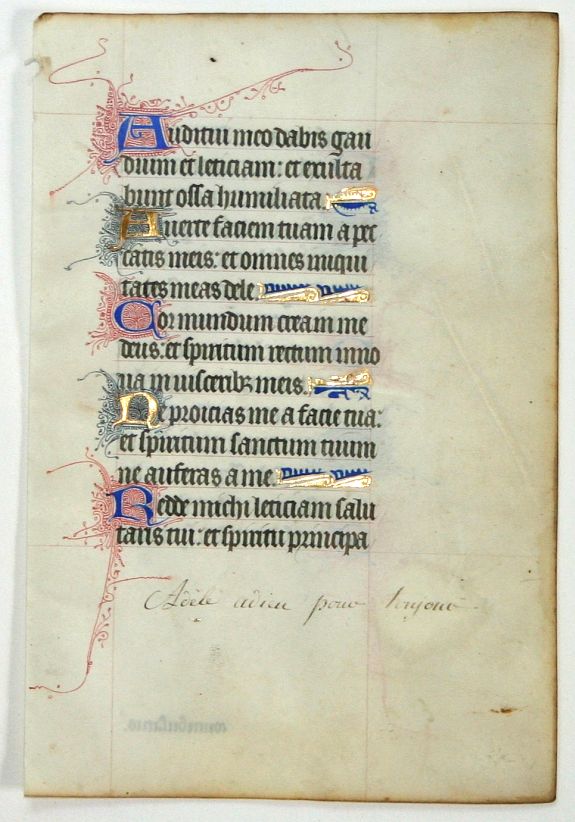 Auditui meo dabis gau
dium et leticiam: et exulta
bunt ossa humiliata.
Auerte faciem tuam a pec
catis meis: et omnes iniqui
tates meas dele
Cor mundum crea in me
deus: et spiritum rectum inno
ua in uisceribꝫ meis.
Ne proicias me a facie tua:
et spiritum sanctum tuum
ne auferas a me.
Redde michi leticiam salu
taris tui: et spiritu principa
Adele adieu pour toujour